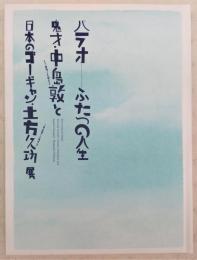 パラオ――ふたつの人生
鬼才・中島敦と
日本のゴーギャン・土方久功 展